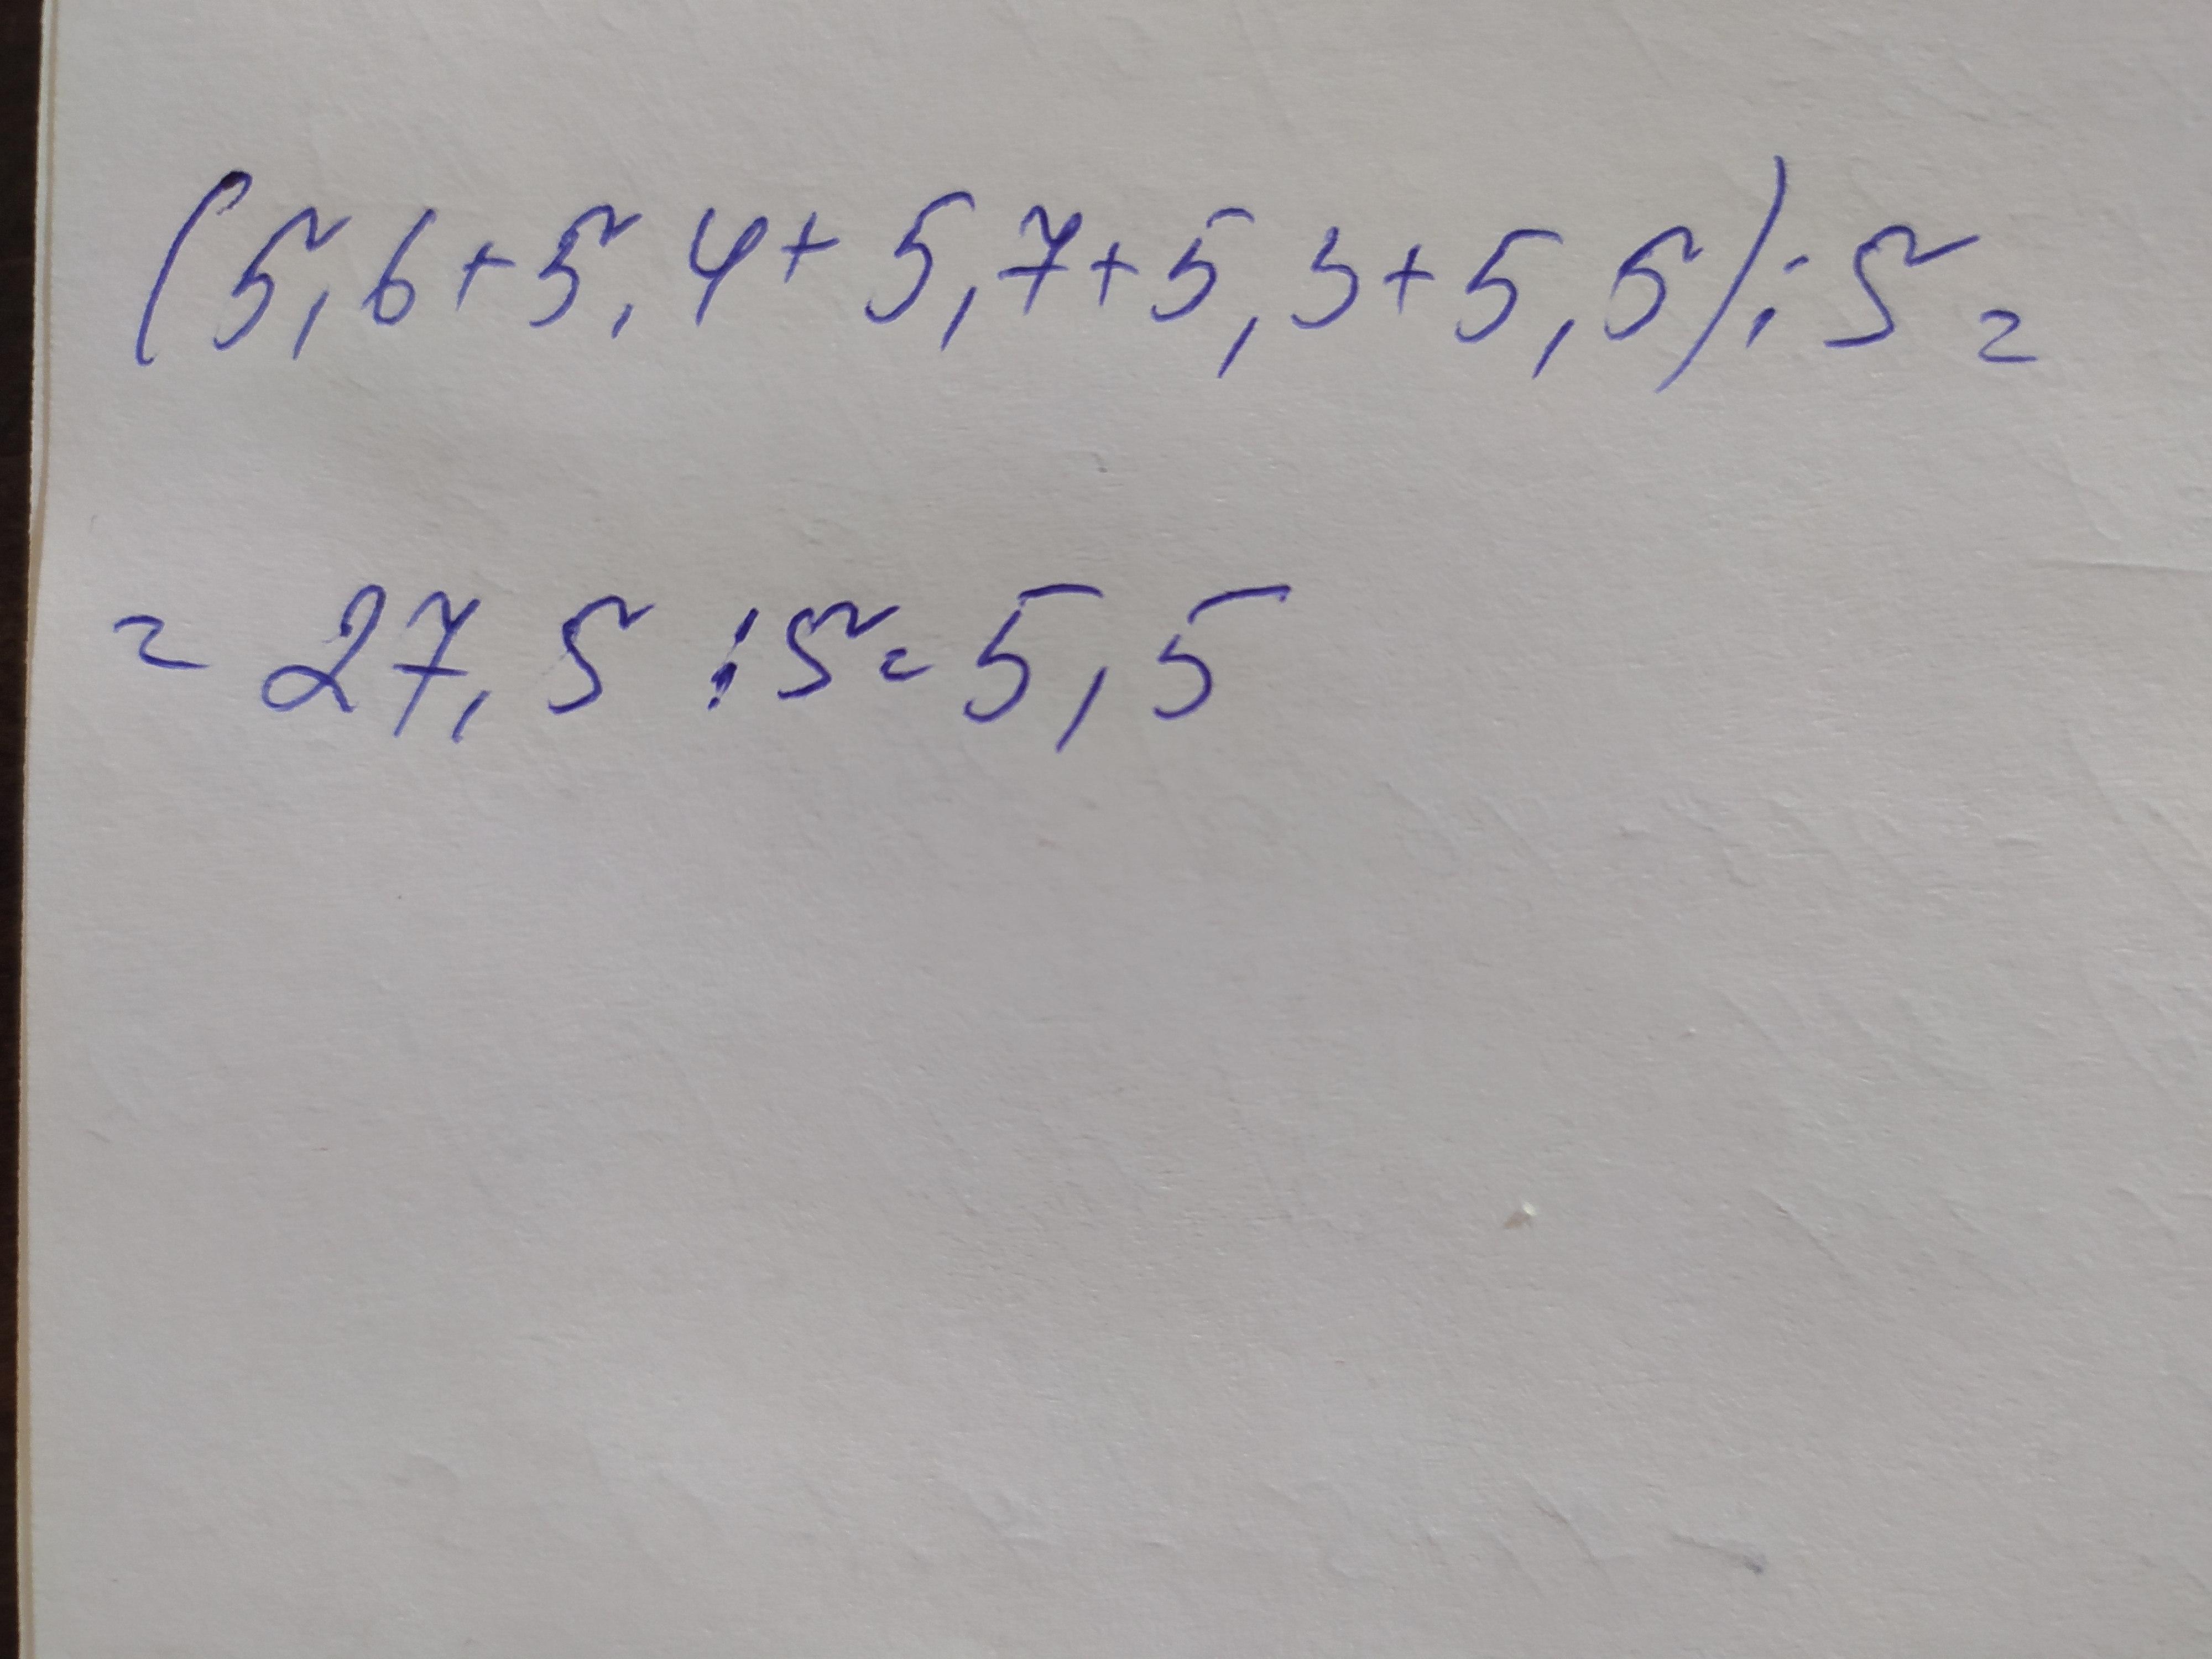 (5,6+5,4+5,7+5,3+5,5):5=
=27,5:5=5,5